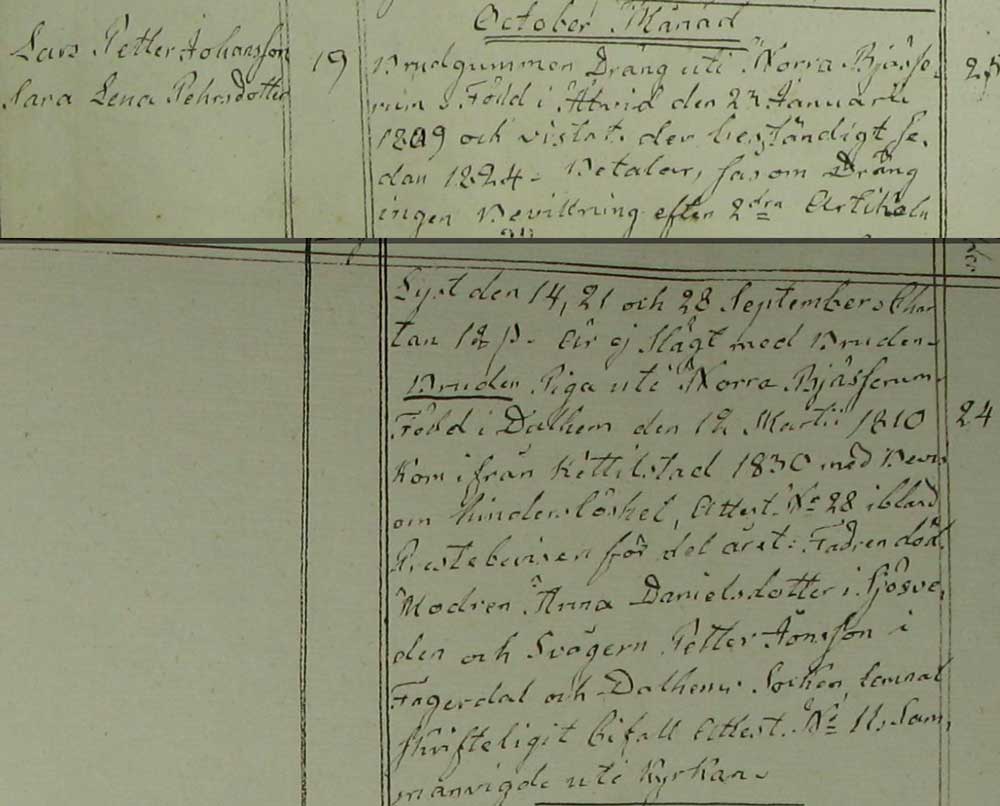 October Månad
Lars Petter Johansson
Sara Lena Pehrsdotter
19
Brudgummen Dräng uti Norra Bjässe-
rum. Född i Åtvid den 23 Januarii
1809 och vistat. der beständigt se-
dan 1824. Betalar, såsom Dräng
ingen Bevillning efter 2dra Artikeln
25
Lyst den 14, 21 och 28 September. Char-
tan 12 s. Är ej Slägt med Bruden.
Bruden Piga uti Norra Bjässerum.
Född i Dalhem den 12 Martii 1810
24
Kom ifrån Kättilstad 1830 med Bevis
om hinderslöshet, Attest. No 28 ibland
Prestebevisen för det året: Fadren död.
Modren Anna Danielsdotter i Sjösve-
den och Svågern Petter Jonsson i
Fagerdal och Dalhems Socken, lemnat
skrifteligit bifall Attest. No 11. Sam-
manvigde uti Kyrkan.